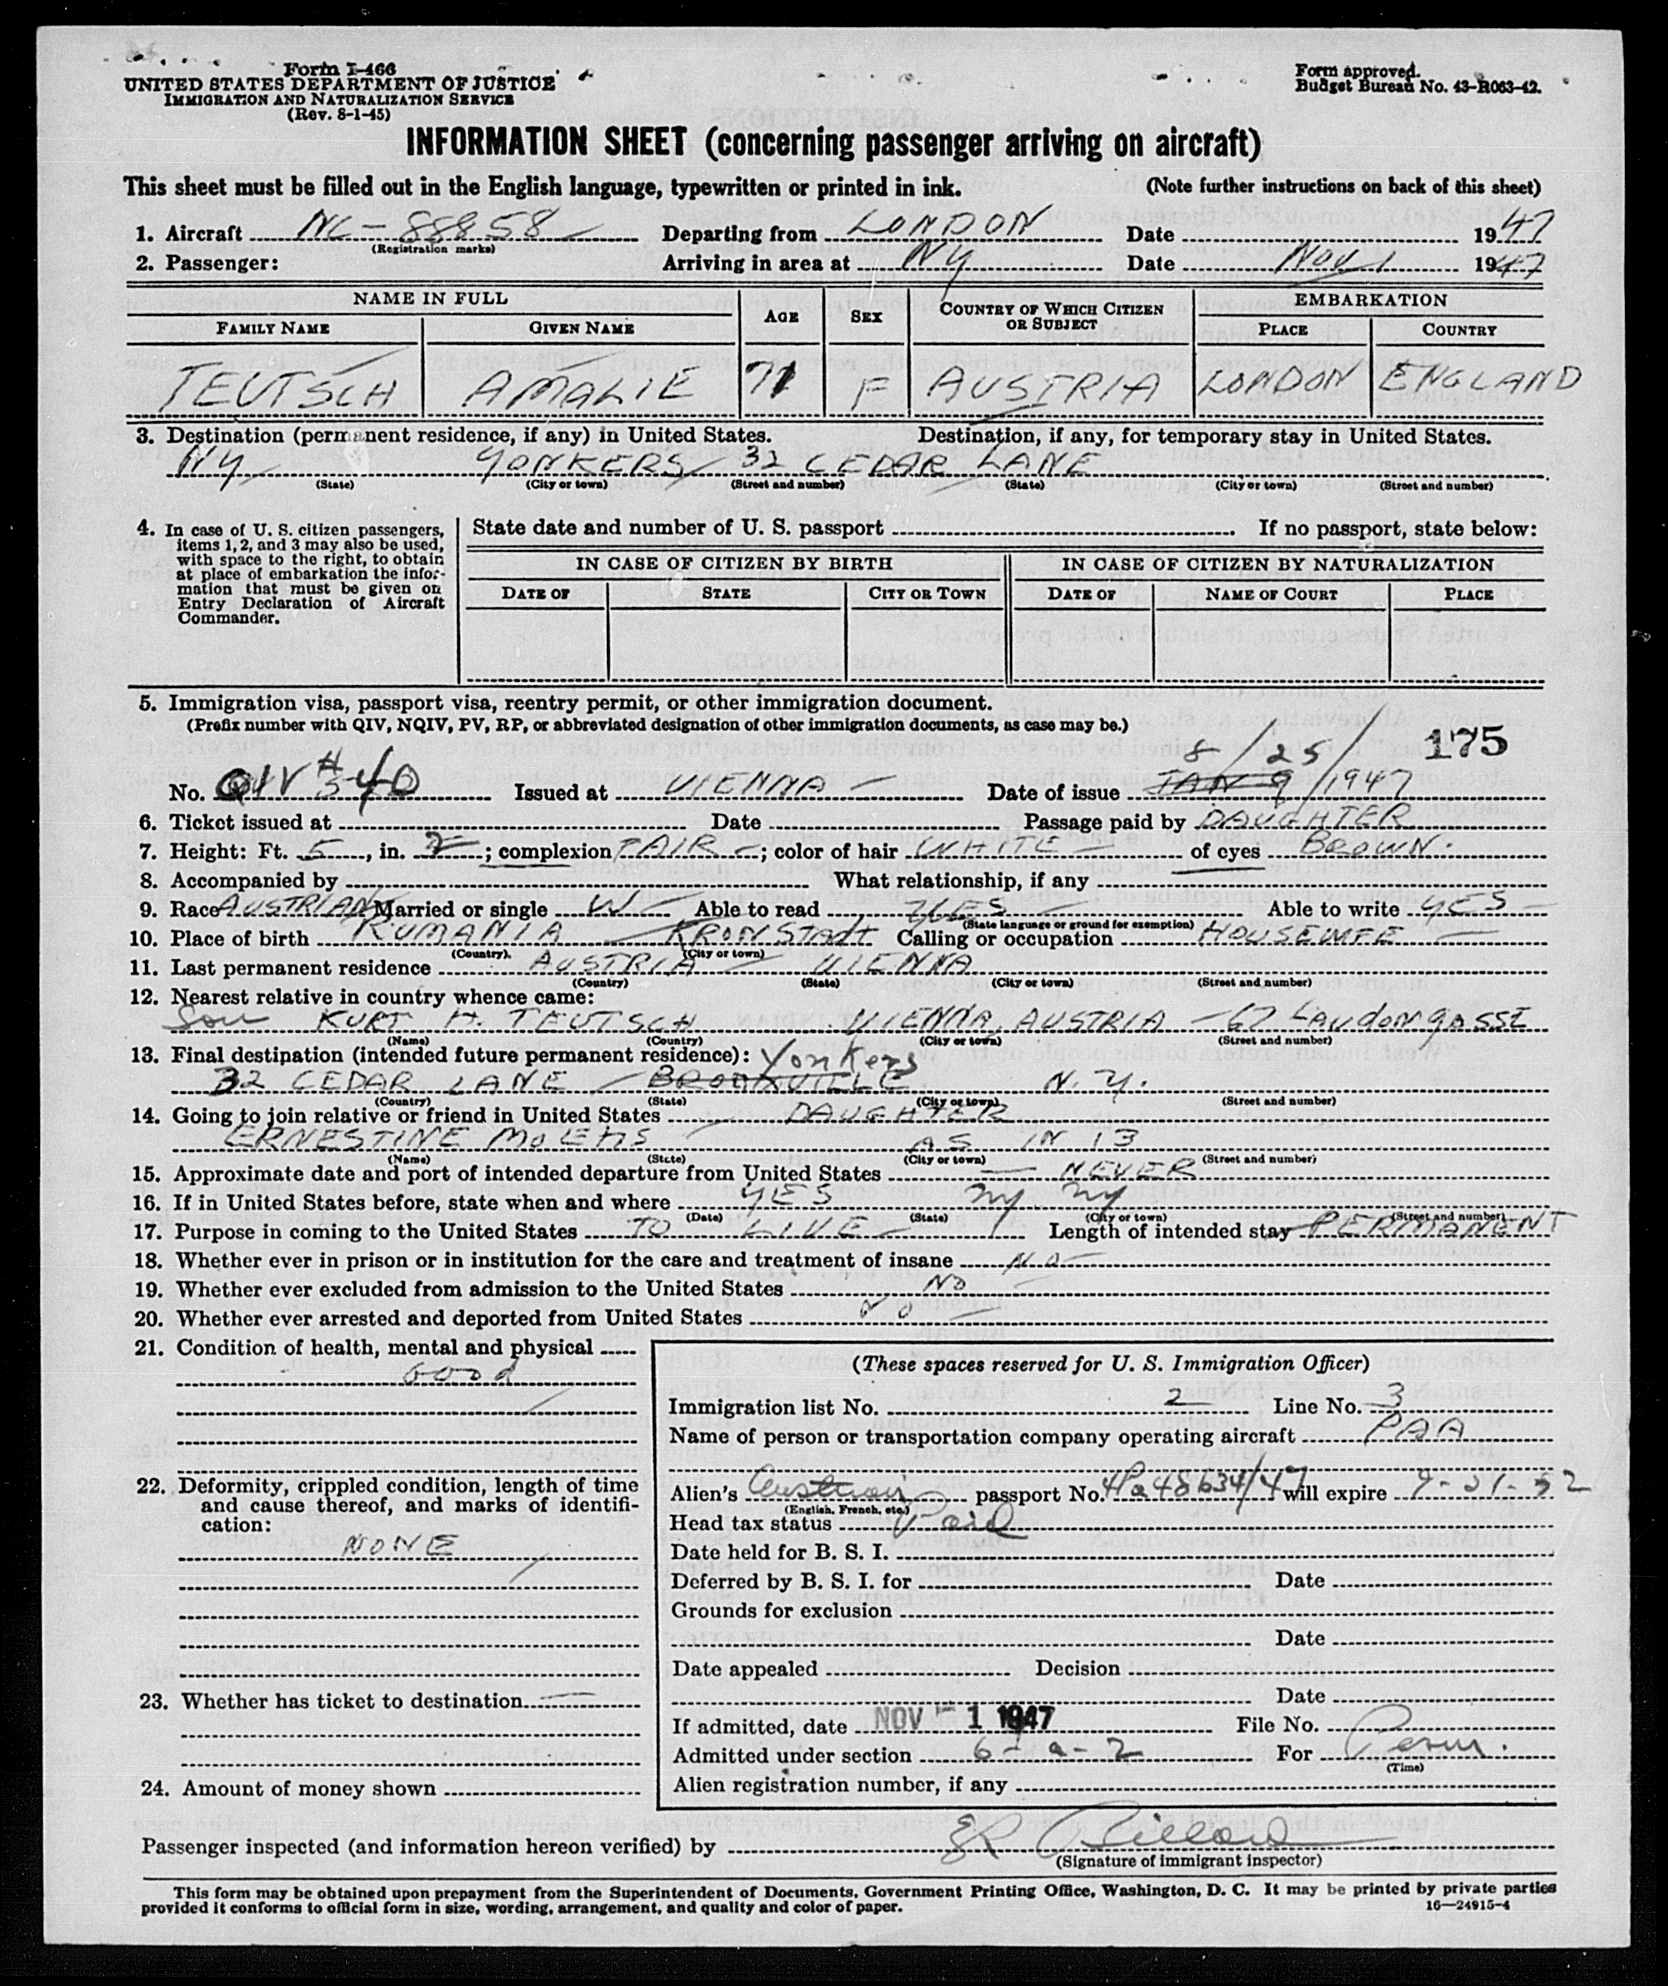 Form I-466
UNITED STATES DEPARTMENT OF JUSTICE
IMMIGRATION AND NATURALIZATION SERVICE
(Rev. 8-1-45)
Form approved.
Budget Bureau No. 43-R063-42.
INFORMATION SHEET (concerning passenger arriving on aircraft)
This sheet must be filled out in the English language, typewritten or printed in ink. (Note further instructions on back of this sheet)
1. Aircraft NC-88858 Departing from LONDON Date 1947
(Registration marks)
2. Passenger: Arriving in area at NY Date Nov 1 1947
NAME IN FULL AGE SEX COUNTRY OF WHICH CITIZEN OR SUBJECT EMBARKATION
FAMILY NAME GIVEN NAME PLACE COUNTRY
TEUTSCH AMALIE 71 F AUSTRIA LONDON ENGLAND
3. Destination (permanent residence, if any) in United States. Destination, if any, for temporary stay in United States.
NY YONKERS 32 CEDAR LANE
(State) (City or town) (Street and number) (State) (City or town) (Street and number)
4. In case of U. S. citizen passengers, items 1, 2, and 3 may also be used, with space to the right, to obtain at place of embarkation the information that must be given on Entry Declaration of Aircraft Commander.
State date and number of U. S. passport If no passport, state below:
IN CASE OF CITIZEN BY BIRTH IN CASE OF CITIZEN BY NATURALIZATION
DATE OF STATE CITY OR TOWN DATE OF NAME OF COURT PLACE
5. Immigration visa, passport visa, reentry permit, or other immigration document.
(Prefix number with QIV, NQIV, PV, RP, or abbreviated designation of other immigration documents, as case may be.)
175
8/25/
No. QIV # 540 Issued at VIENNA Date of issue JAN 9 /1947
6. Ticket issued at Date Passage paid by DAUGHTER
7. Height: Ft. 5, in. 2; complexion FAIR; color of hair WHITE of eyes BROWN.
8. Accompanied by What relationship, if any
9. Race AUSTRIAN Married or single W Able to read YES Able to write YES
(State language or ground for exemption)
10. Place of birth RUMANIA KRONSTADT Calling or occupation HOUSEWIFE
(Country). (City or town)
11. Last permanent residence AUSTRIA VIENNA
(Country) (State) (City or town) (Street and number)
12. Nearest relative in country whence came:
Son KURT H. TEUTSCH VIENNA, AUSTRIA - 67 LAUDONGASSE
(Name) (Country) (City or town) (Street and number)
13. Final destination (intended future permanent residence): Yonkers
32 CEDAR LANE BRONXVILLE N.Y.
(Country) (State) (City or town) (Street and number)
14. Going to join relative or friend in United States DAUGHTER
ERNESTINE AS IN 13
(Name) (State) (City or town) (Street and number)
15. Approximate date and port of intended departure from United States NEVER
16. If in United States before, state when and where YES NY NY
(Date) (State) (City or town) (Street and number)
17. Purpose in coming to the United States TO LIVE Length of intended stay PERMANENT
18. Whether ever in prison or in institution for the care and treatment of insane NO
19. Whether ever excluded from admission to the United States NO
20. Whether ever arrested and deported from United States No
21. Condition of health, mental and physical
Good
22. Deformity, crippled condition, length of time and cause thereof, and marks of identification:
NONE
23. Whether has ticket to destination
24. Amount of money shown
(These spaces reserved for U. S. Immigration Officer)
Immigration list No. 2 Line No. 3
Name of person or transportation company operating aircraft PAA
Alien's Austrian passport No. 4Pa48634/47 will expire
(English, French, etc.)
Head tax status Paid
Date held for B. S. I.
Deferred by B. S. I. for Date
Grounds for exclusion
Date
Date appealed Decision
Date
If admitted, date NOV 1 1947 File No.
Admitted under section 6-a-2 For Perm.
(Time)
Alien registration number, if any
Passenger inspected (and information hereon verified) by
(Signature of immigrant inspector)
This form may be obtained upon prepayment from the Superintendent of Documents, Government Printing Office, Washington, D. C. It may be printed by private parties
provided it conforms to official form in size, wording, arrangement, and quality and color of paper. 16—24915-4